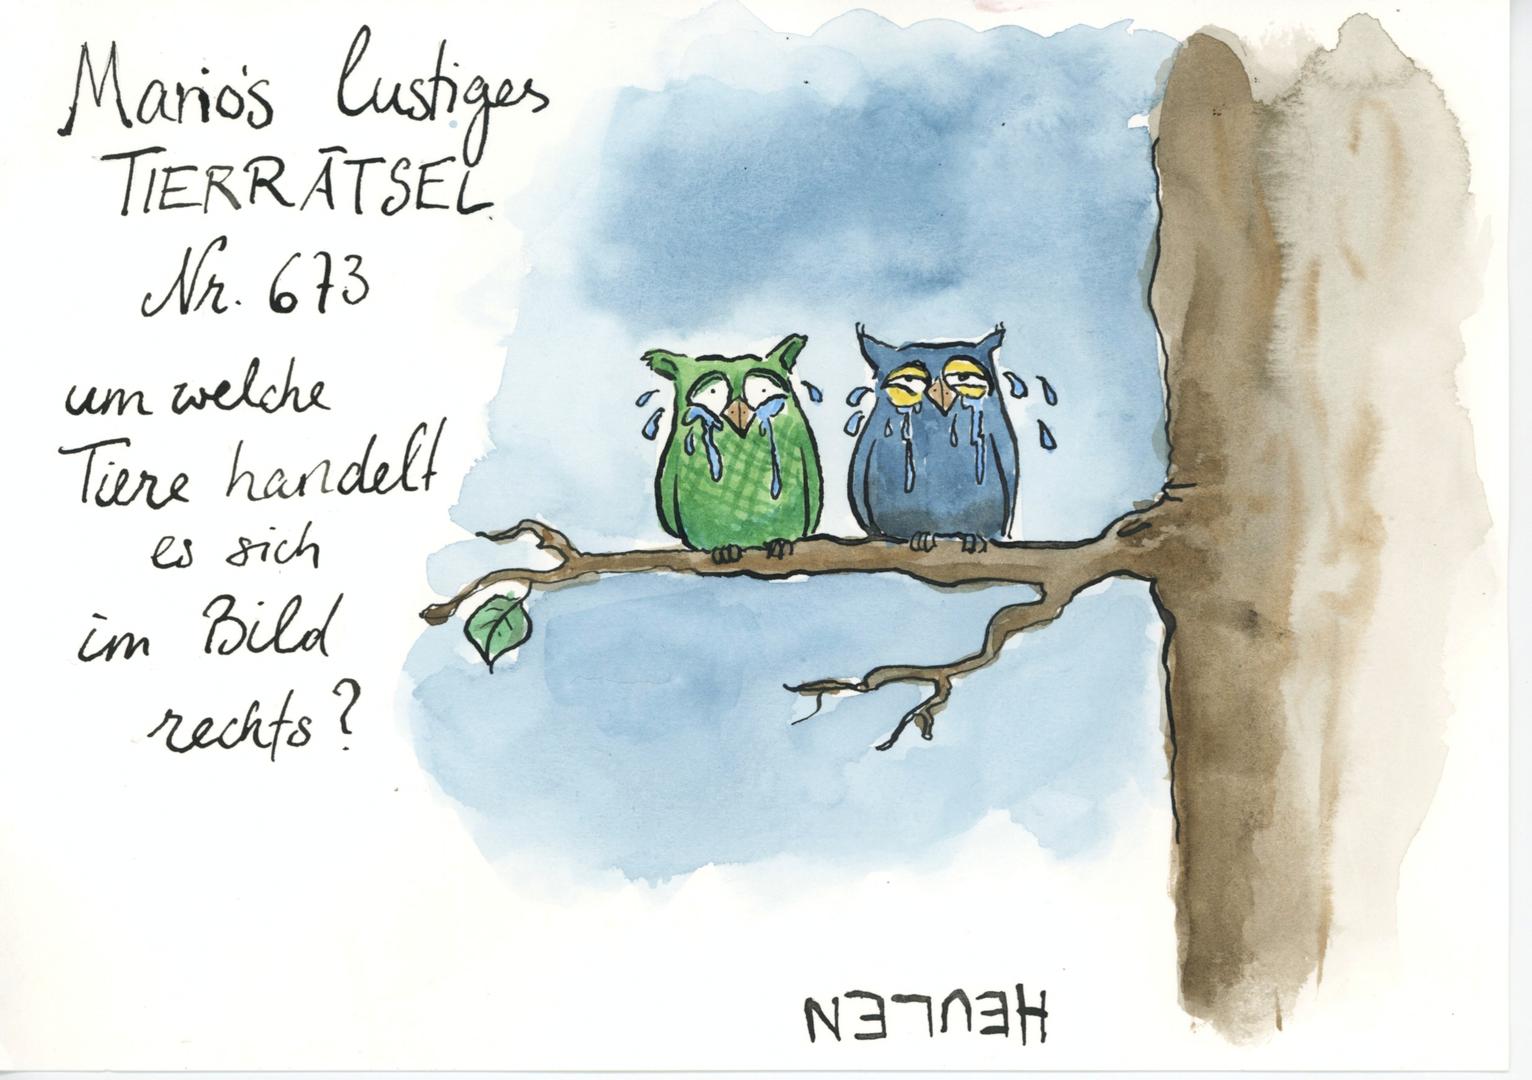 Mario's lustiges
TIERRÄTSEL
Nr. 673
um welche
Tiere handelt
es sich
im Bild
rechts?
HEULEN